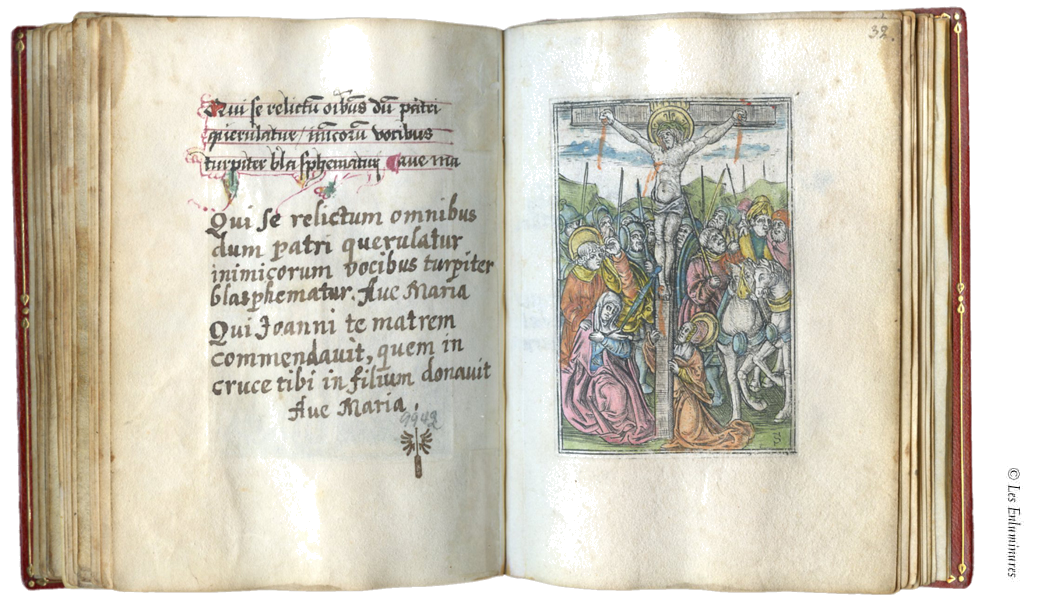 Qui se relictū oībus dū patri
querulatur / inīicorū vocibus
turpiter blasphematur aue ma
Qui se relictum omnibus
dum patri querulatur
inimicorum vocibus turpiter
blasphematur. Aue Maria
Qui Ioanni te matrem
commendauit, quem in
cruce tibi in filium donauit
Aue Maria.
9942
38.
© Les Enluminures